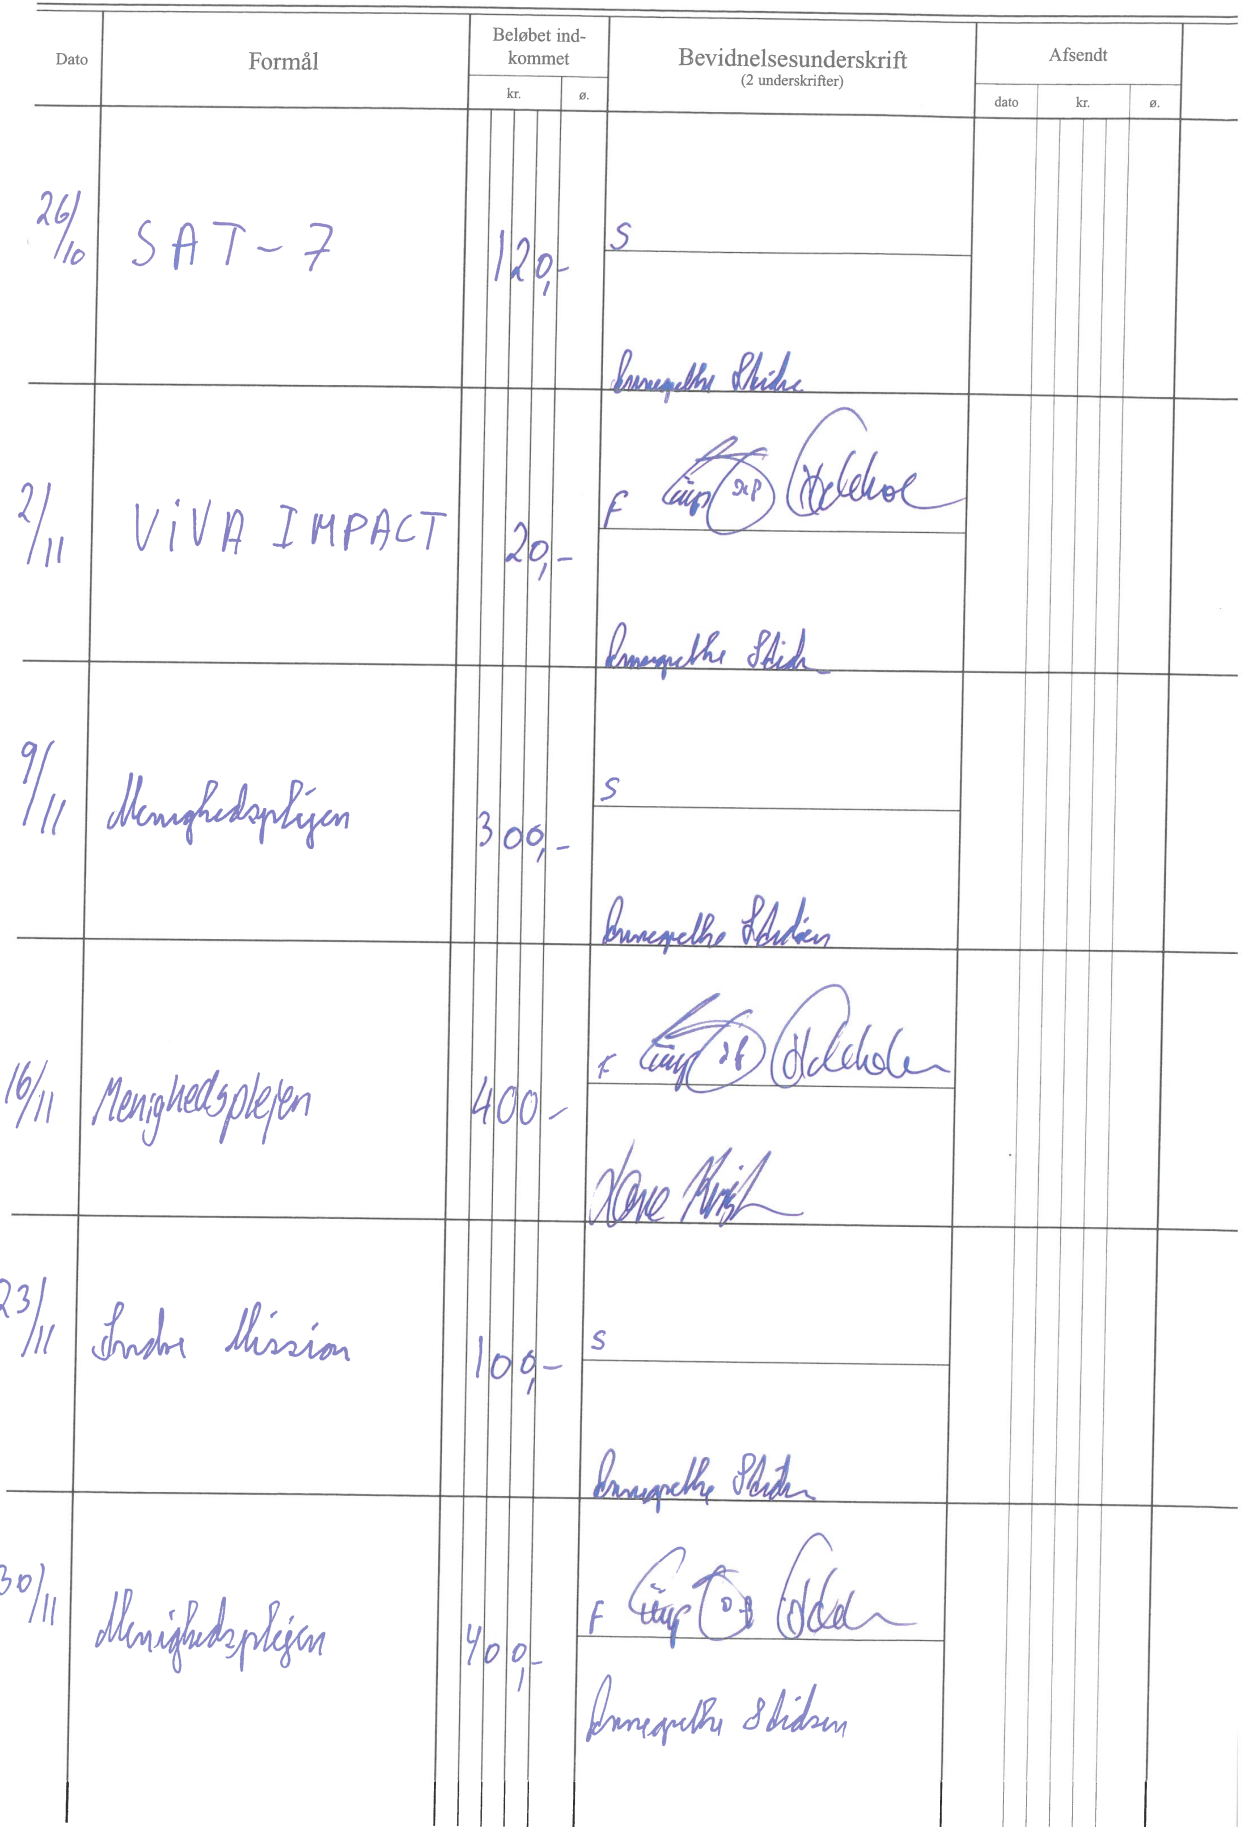 Dato Formål Beløbet ind- Bevidnelsesunderskrift Afsendt
kommet (2 underskrifter)
kr. ø. dato kr. ø.
26/10 SAT-7 120,- S
Annegrethe
2/11 ViVA IMPACT 20,- F
Annegrethe
9/11 Menighedsplejen 300,- S
Annegrethe Stidsen
16/11 Menighedsplejen 400- F
23/11 Indre Mission 100,- S
Annegrethe
30/11 Menighedsplejen 400,- F
Annegrethe Stidsen